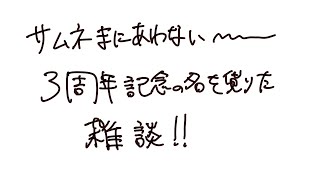 サムネまにあわない〜〜
3周年記念の名を覚りた
雑談!!